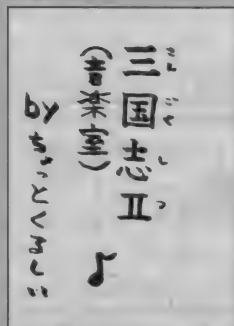 三国志Ⅱ♪
(音楽室)
by ちょっとくるしい